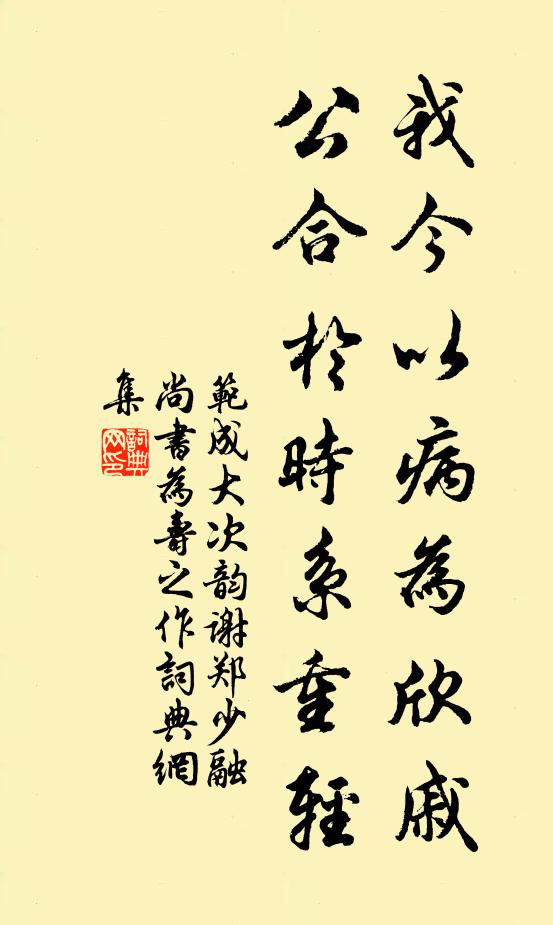 我今以病為欣戚
公合於時系重輕
範成大次韵谢郑少融
尚書為壽之作詞典網
集
詞典
网印